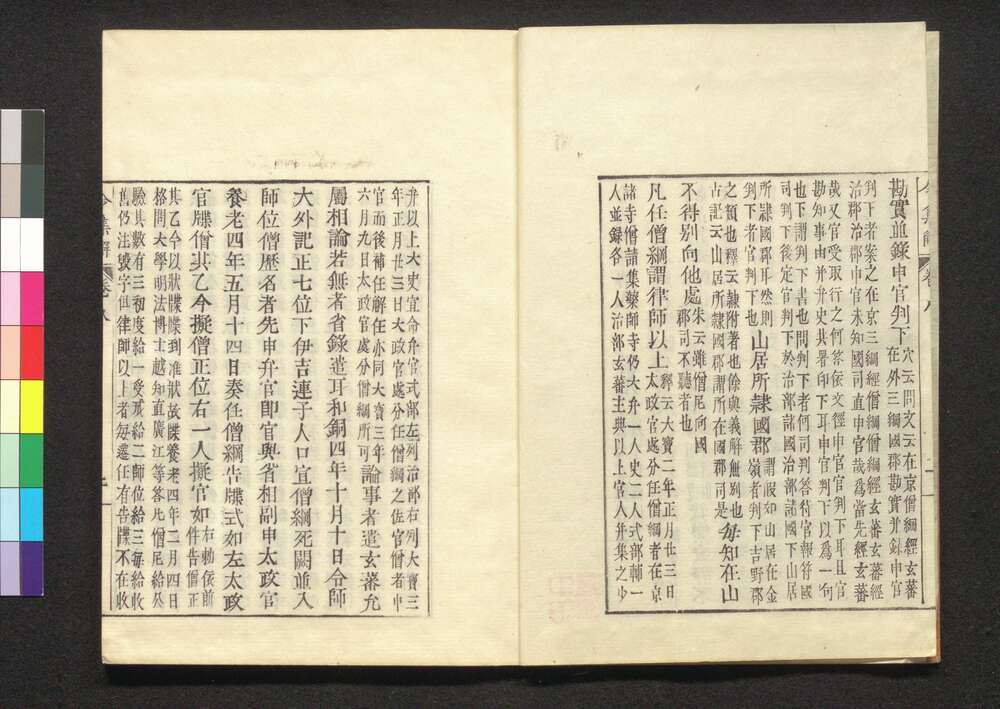 勘實並錄申官判下
穴云問文云在京僧綱經玄蕃
在外三綱國郡勘實并錄申官
判下者案之在京三綱經僧綱僧綱經玄蕃玄蕃經
治郡治郡申官未知國司直申官哉爲當先經玄蕃
哉又官受取行之何答依文徑申官官判下耳且官
勘知事由并并史共署印下下耳申官判下以爲一句
也下謂判下書也問判下者何司判答待官報符國
司判下後定官判下於治部諸國治部諸國下山居
所隷國郡耳然則
判下者官判下也
山居所隷國郡
謂假如山居在金
嶺者判下吉野郡
之類也釋云隷附著也餘與義解無別也
古記云山居所隷國郡謂所在國郡司是
毎知在山
不得別向他處
朱云雖僧尼向國
郡司不聽者也
凡任僧綱謂律師以上
釋云大寶二年正月廿三日
太政官處分任僧綱者在京
諸寺僧請集藥師寺仍大弁一人史二人式部輔一
人並錄各一人治部玄蕃主典以上官人并集之少
弁以上大史宣命弁官式部左列治部右列大寶三
年正月廿三日大政官處分任僧綱之佐官僧者申
官而後補任解任亦同大寶三年
六月九日太政官處分僧綱所可
論事者遣玄蕃允
屬相論若無者省錄遣耳和銅四年十月十日令師
大外記正七位下伊吉連子人口宣僧綱死闕並入
師位僧歷名者先申弁官即官與省相副申太政官
養老四年五月十四日奏任僧綱告牒式如左太政
官牒僧某乙今擬僧正位右一人擬官如
右勅依前
件告僧正
其乙今以狀牒牒到准狀故牒養老四年二月四日
格問大學明法博士越知直廣江等答凡僧尼給公
驗其數有三初度給一受戒給二師位給三毎給收
舊仍注毀字但律師以上者毎遷任有告牒不在收
令集解 卷八